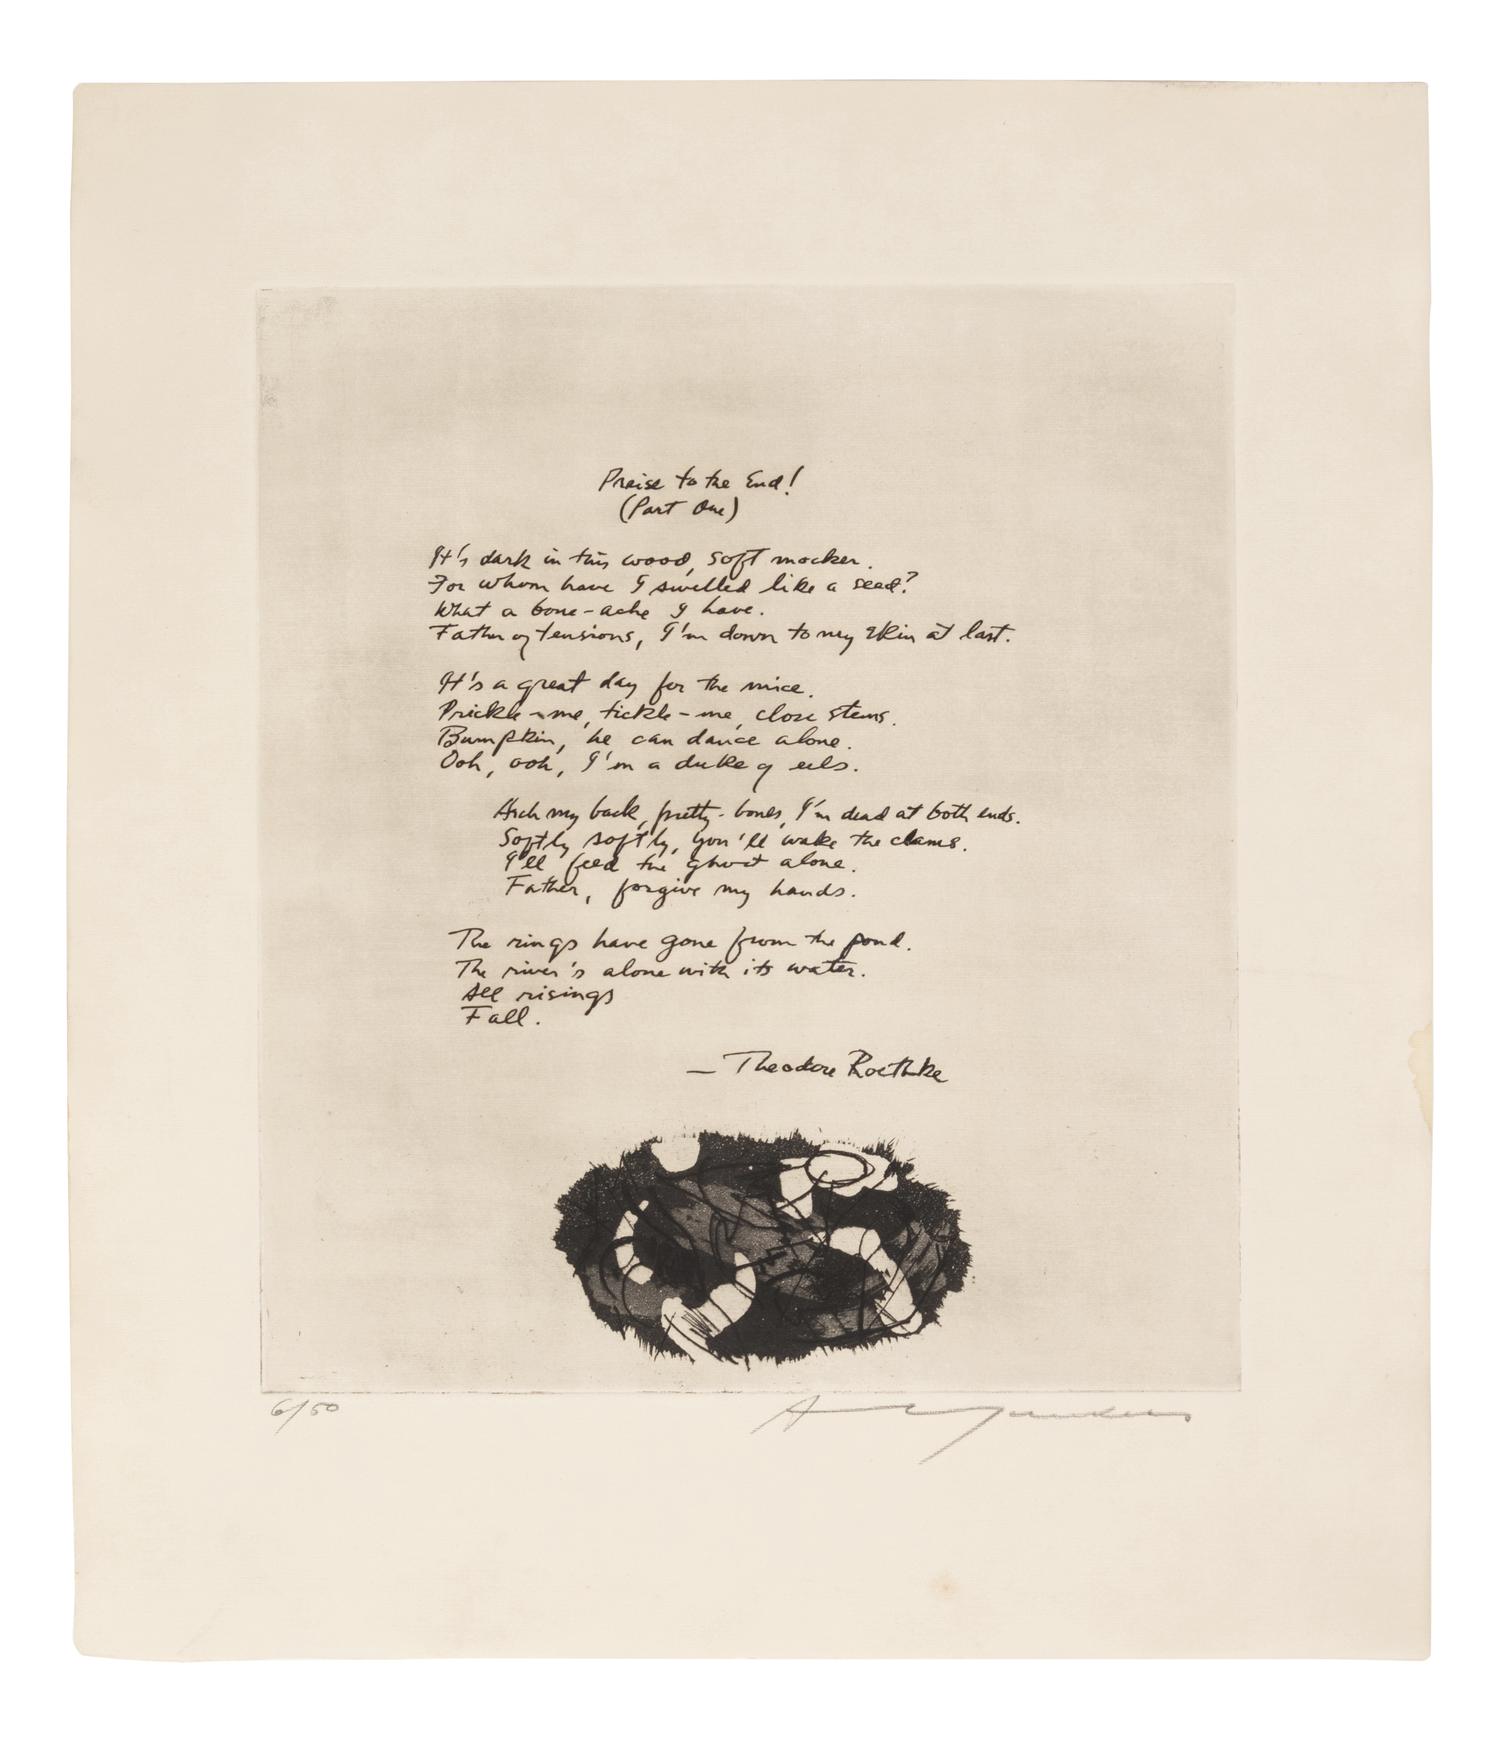 Praise to the End!
(Part One)
It's dark in this wood, soft mocker.
For whom have I swelled like a seed?
What a bone-ache I have.
Father of tensions, I'm down to my skin at last.
It's a great day for the mice.
Prickle-me, tickle-me, close stems.
Bumpkin, he can dance alone.
Ooh, ooh, I'm a duke of eels.
Arch my back, pretty-bones, I'm dead at both ends.
Softly softly, you'll wake the clams.
I'll feed the ghost alone.
Father, forgive my hands.
The rings have gone from the pond.
The river's alone with its water.
All risings
Fall.
— Theodore Roethke
6/50